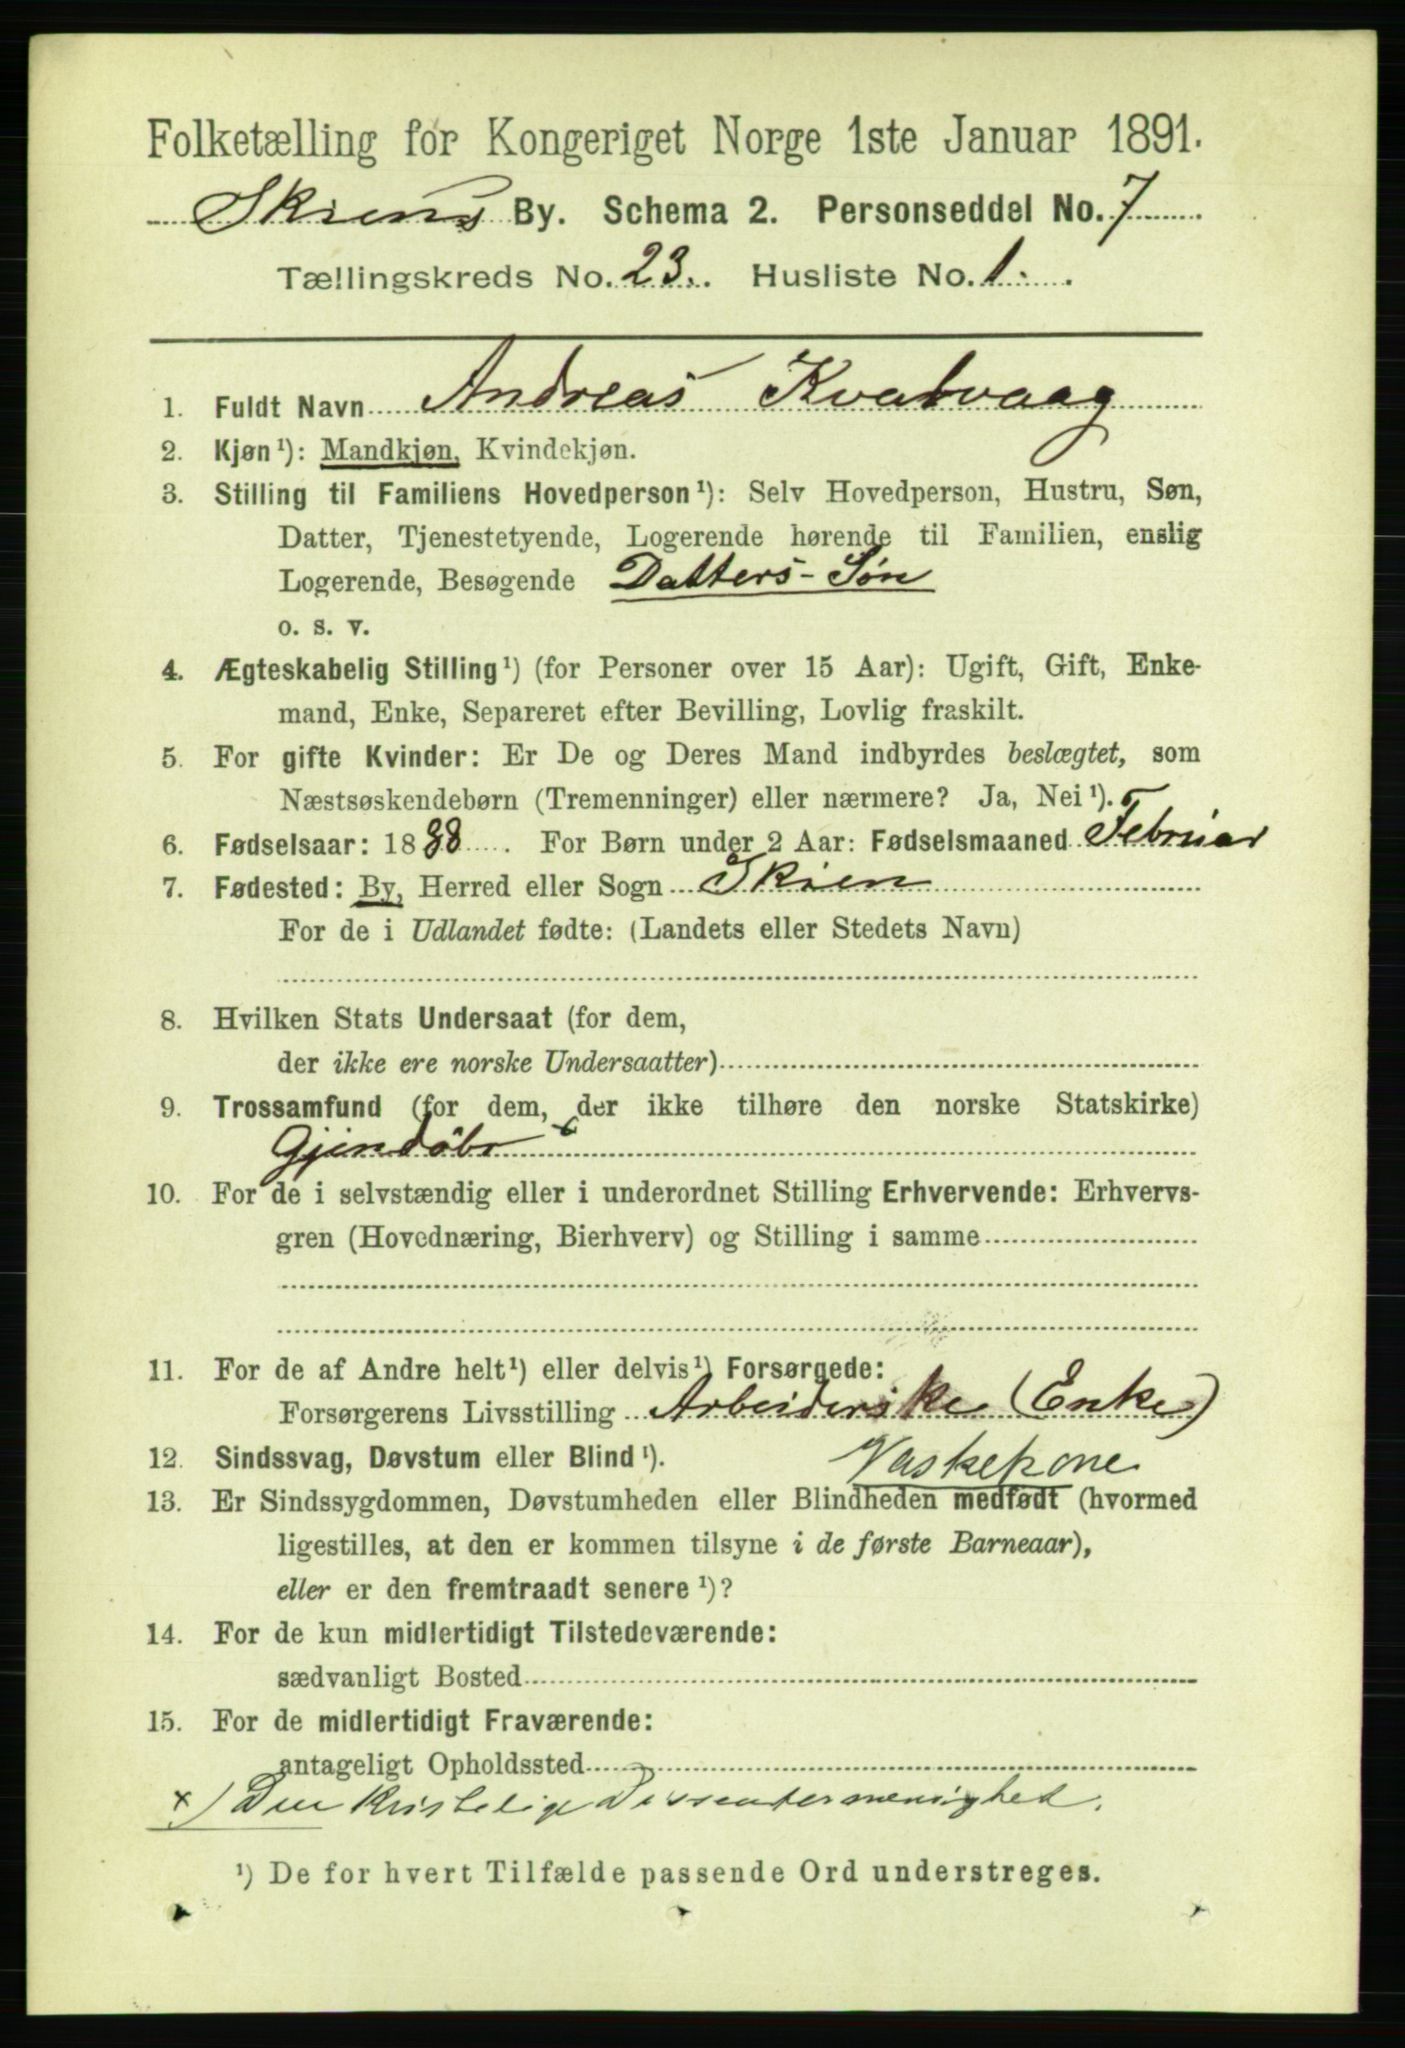 Folketælling for Kongeriget Norge 1ste Januar 1891.
Skiens By. Schema 2. Personseddel No. 7
Tællingskreds No. 23. Husliste No. 1.
1. Fuldt Navn Andreas Kvalvaag
2. Kjøn¹): Mandkjøn, Kvindekjøn.
3. Stilling til Familiens Hovedperson¹): Selv Hovedperson, Hustru, Søn,
Datter, Tjenestetyende, Logerende hørende til Familien, enslig
Logerende, Besøgende Datters-Søn
o. s. v.
4. Ægteskabelig Stilling¹) (for Personer over 15 Aar): Ugift, Gift, Enke-
mand, Enke, Separeret efter Bevilling, Lovlig fraskilt.
5. For gifte Kvinder: Er De og Deres Mand indbyrdes beslægtet, som
Næstsøskendebørn (Tremenninger) eller nærmere? Ja, Nei¹).
6. Fødselsaar: 1888. For Børn under 2 Aar: Fødselsmaaned Februar
7. Fødested: By, Herred eller Sogn Skien
For de i Udlandet fødte: (Landets eller Stedets Navn)
8. Hvilken Stats Undersaat (for dem,
der ikke ere norske Undersaatter)
9. Trossamfund (for dem, der ikke tilhøre den norske Statskirke)
Gjendöbr x
10. For de i selvstændig eller i underordnet Stilling Erhvervende: Erhvervs-
gren (Hovednæring, Bierhverv) og Stilling i samme
11. For de af Andre helt¹) eller delvis¹) Forsørgede:
Forsørgerens Livsstilling Arbeiderske (Enke)
12. Sindssvag, Døvstum eller Blind¹). Vaskekone
13. Er Sindssygdommen, Døvstumheden eller Blindheden medfødt (hvormed
ligestilles, at den er kommen tilsyne i de første Barneaar),
eller er den fremtraadt senere¹)?
14. For de kun midlertidigt Tilstedeværende:
sædvanligt Bosted
15. For de midlertidigt Fraværende:
antageligt Opholdssted
x) Den Kristelige Dissentermenighed.
¹) De for hvert Tilfælde passende Ord understreges.